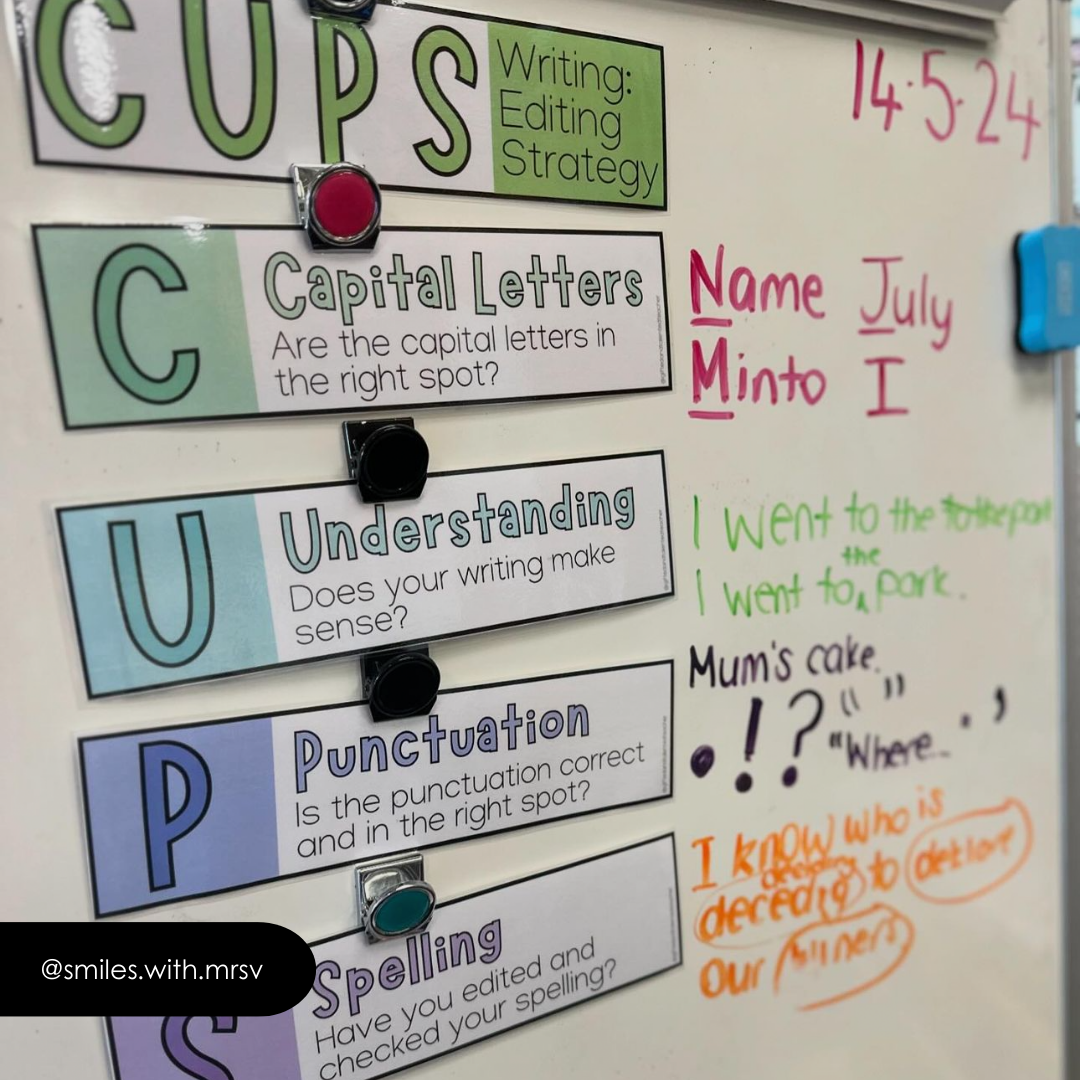 CUPS
Writing:
Editing
Strategy
14.5.24
C
Capital Letters
Are the capital letters in
the right spot?
Name July
Minto I
U
Understanding
Does your writing make
sense?
I went to the to the park
the
I went to park.
P
Punctuation
Is the punctuation correct
and in the right spot?
Mum's cake.
. ! ? " " . ,
"Where...
S
Spelling
Have you edited and
checked your spelling?
I know who is
decedig to
our
@smiles.with.mrsv